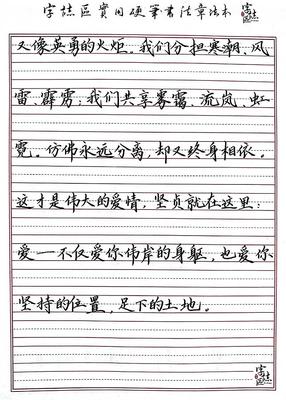 實用硬筆書法章法本
又像英勇的火炬。我们分担寒潮、风
雷、霹雳；我们共享雾霭、流岚、虹
霓。仿佛永远分离，却又终身相依。
这才是伟大的爱情，坚贞就在这里：
爱—不仅爱你伟岸的身躯，也爱你
坚持的位置，足下的土地。